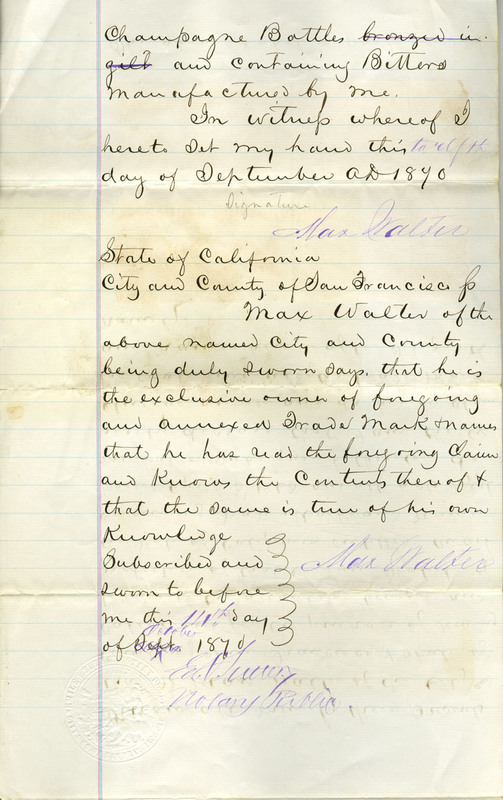 Champagne Bottles bronzed in
gilt and containing Bitters
manufactured by me.
In witness whereof I
hereto set my hand this twelfth
day of September AD 1870
Signature
Max Walter
State of California
City and County of San Francisco ss
Max Walter of the
above named City and County
being duly sworn says. that he is
the exclusive owner of foregoing
and annexed Trade Mark & names
that he has read the foregoing Claim
and Knows the Contents thereof &
that the same is true of his own
Knowledge
Subscribed and
Max Walter
sworn to before
me this 11th day
October
of Sept 1870
Notary Public